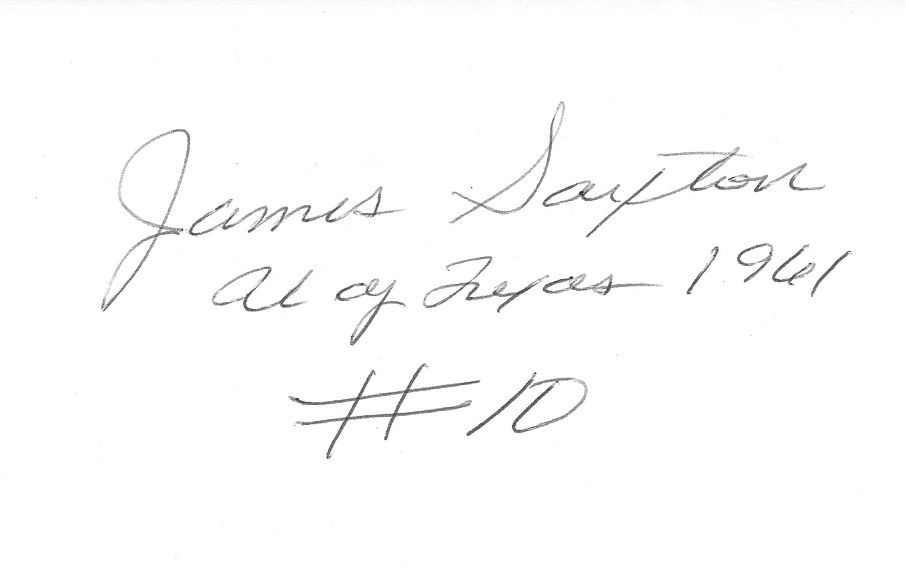 James Saxton
U of Texas 1961
#10